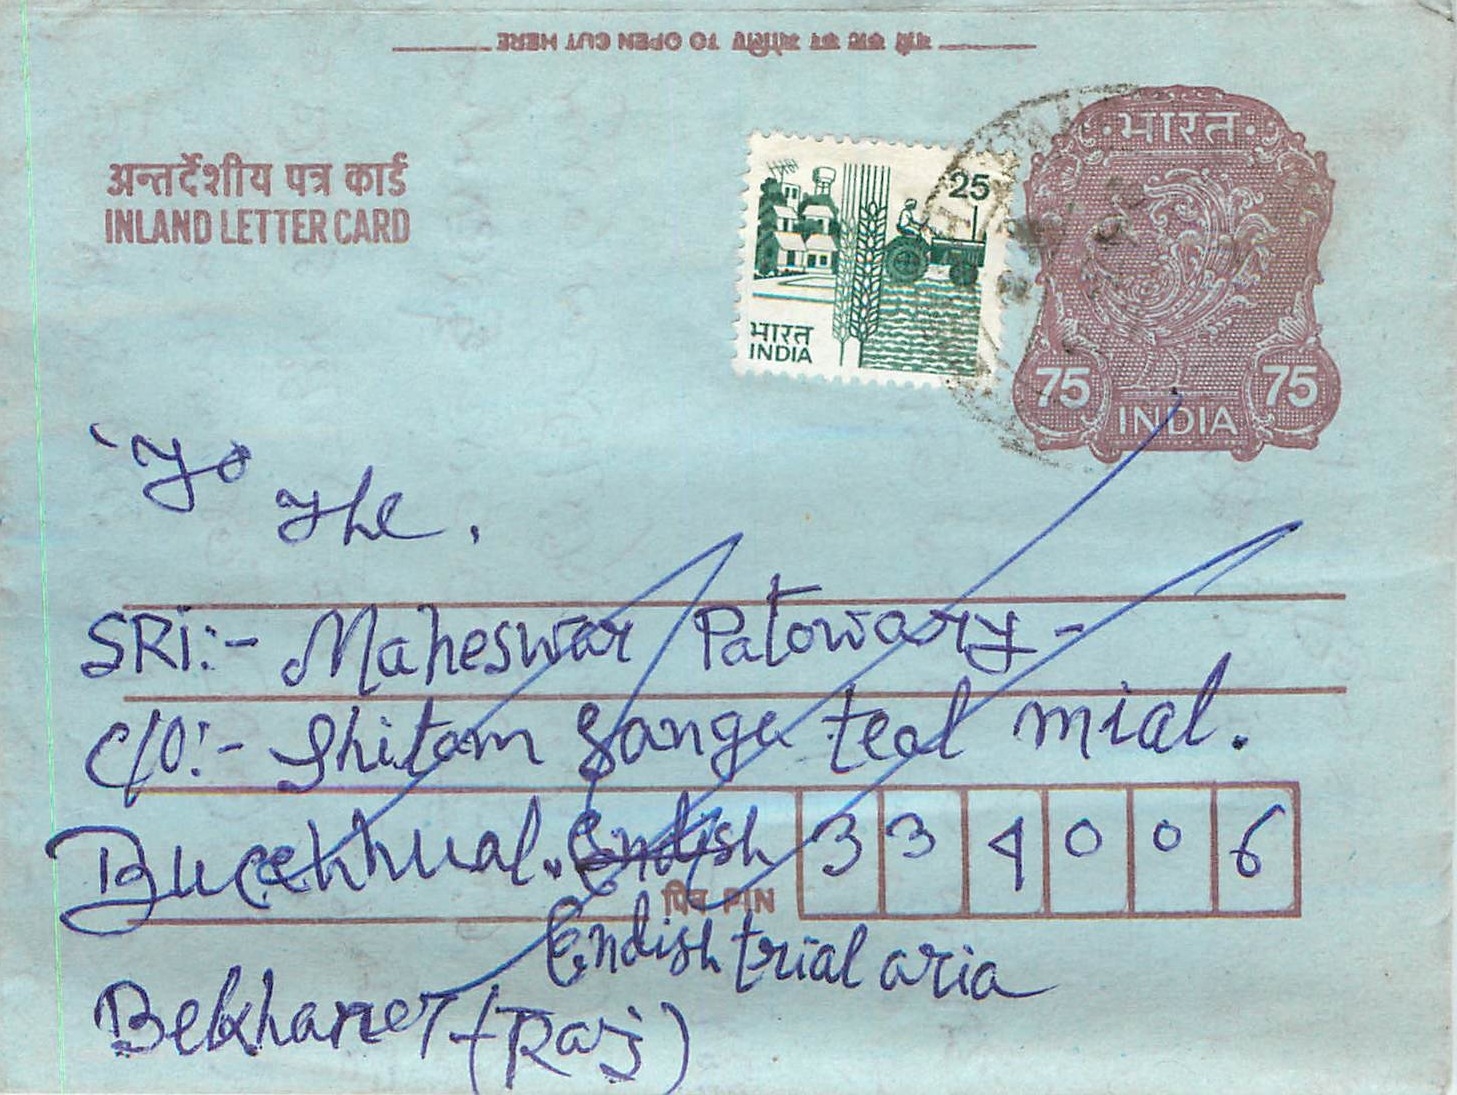 यहाँ काट कर खोलिए TO OPEN CUT HERE
अन्तर्देशीय पत्र कार्ड
INLAND LETTER CARD
25
भारत
INDIA
भारत
75 75
INDIA
To
The.
SRI:- Maheswar Patowary-
C/O:- Shitam Gange teal mial.
Endish
पिन PIN 334006
Endish trial aria
Bekhaner (Raj)